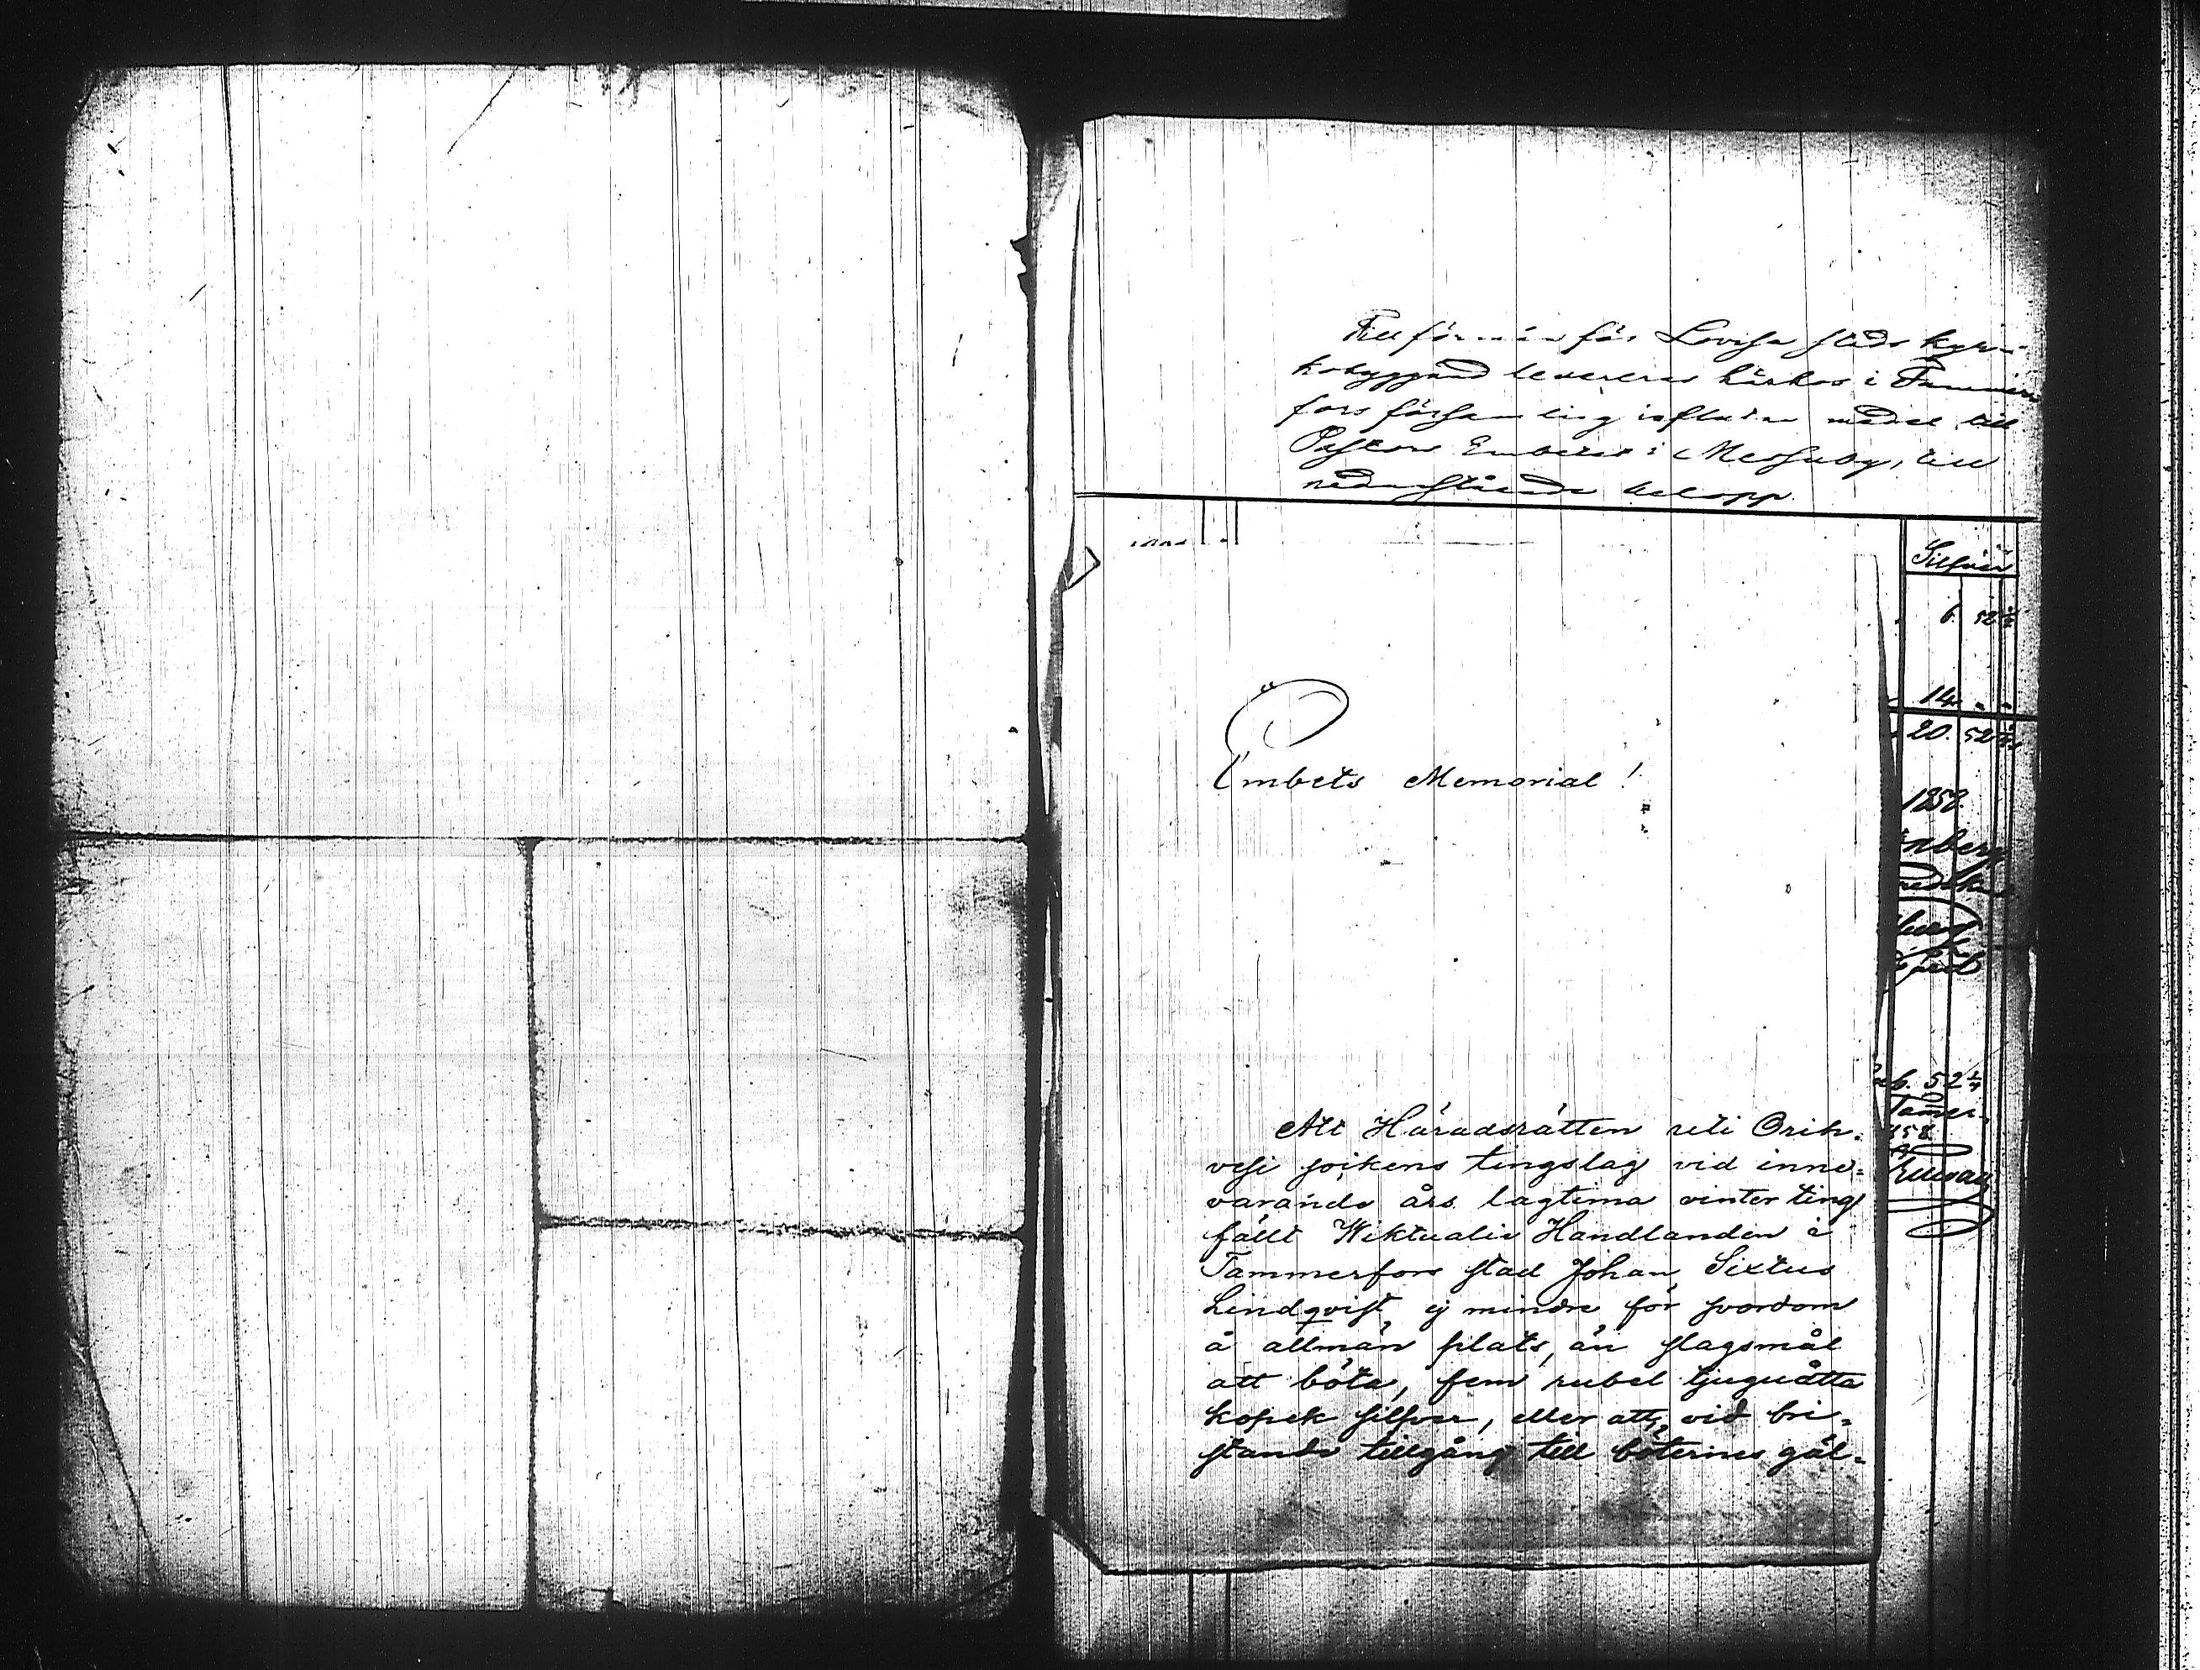 Till förmån för Lovisa stads kyr-
kobyggnad levereras härhos i Tammer
fors församling influtne medel till
Pastors Embetet i Messuby, till
nedanstående belopp.
Silfver
6 52½
14. " "
20. 52½
1858.
nberg
Embets Memorial!
b. 52½
Tamer-
858.
Att Häradsrätten uti Orih-
vesi sokens tingslag vid inne-
varande års lagtima vinter ting
fällt Wiktualie Handlanden i
Tammerfors stad Johan Sixtus
Lindqvist, ej mindre för svordom
å allmän plats, än slagsmål
att böta, fem rubel tjuguåtta
kopek silfver, eller att, vid bri-
stande tillgång till böternes gäl-